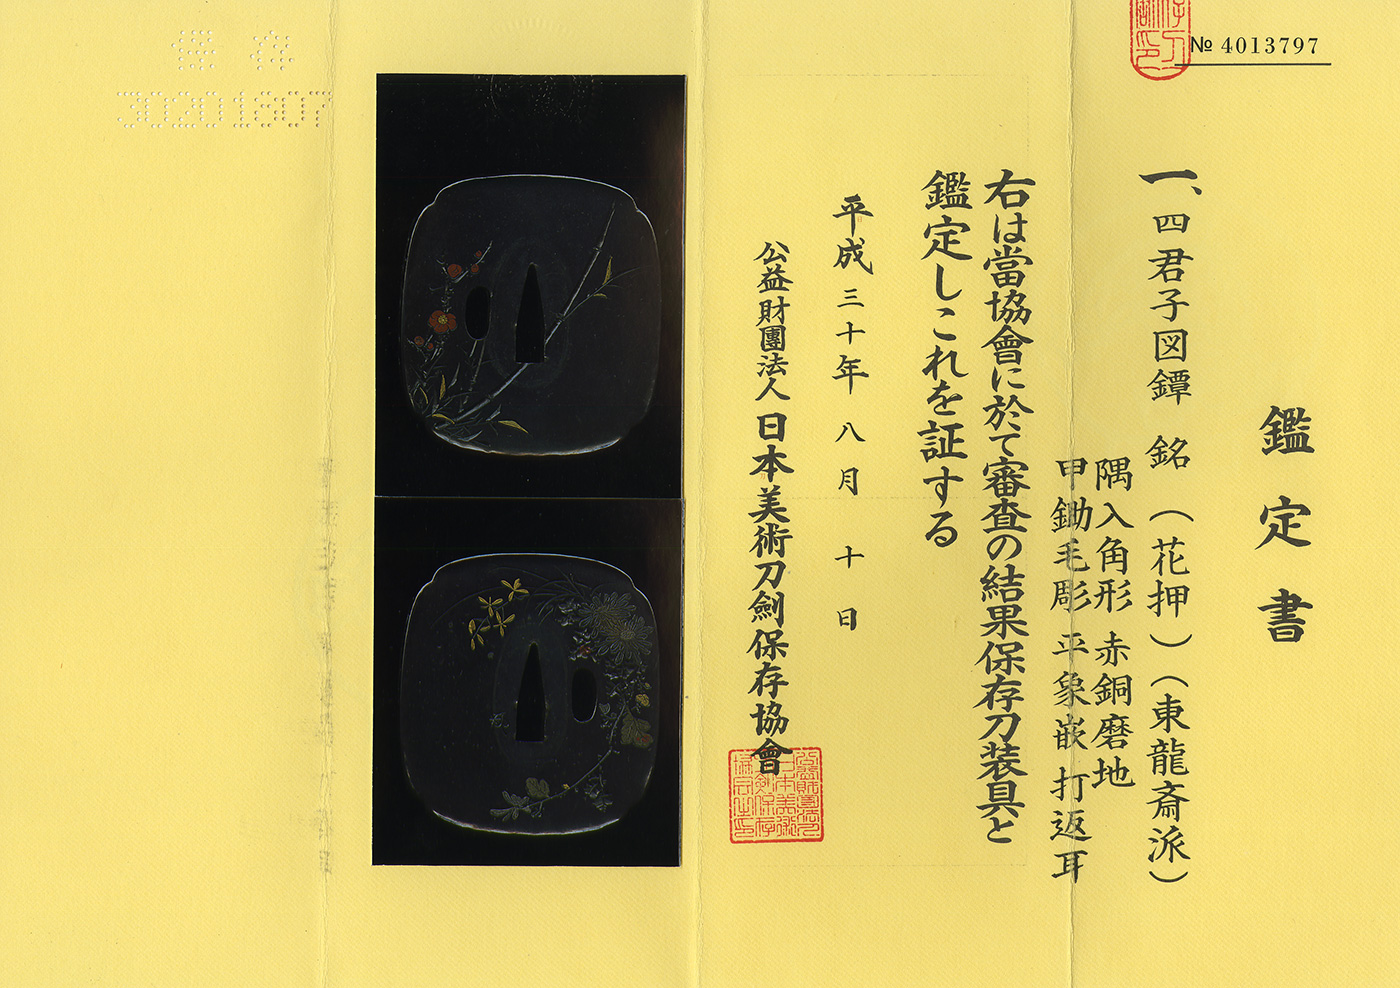 № 4013797
鑑定書
一、四君子図鐔 銘(花押)(東龍斎派)
隅入角形 赤銅磨地
甲鋤毛彫 平象嵌 打返耳
右は當協會に於て審査の結果保存刀装具と
鑑定しこれを証する
平成三十年八月十日
公益財團法人 日本美術刀劍保存協會
保存
30201807